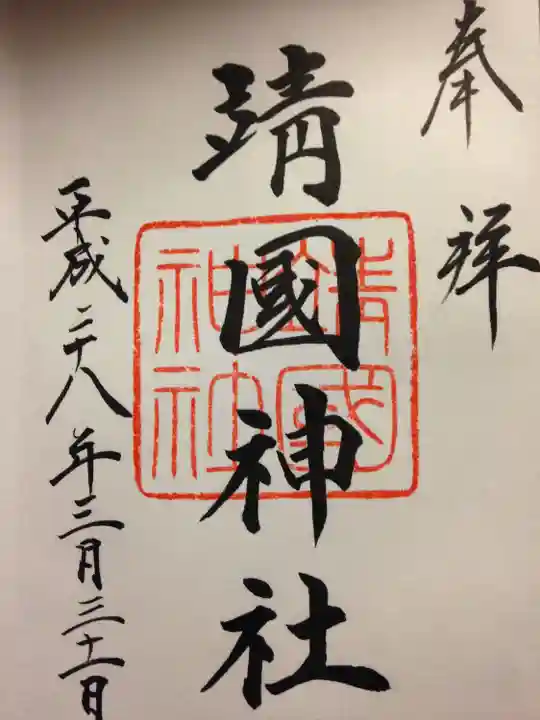 奉拝
靖國神社
平成二十八年三月三十一日
靖國
神社